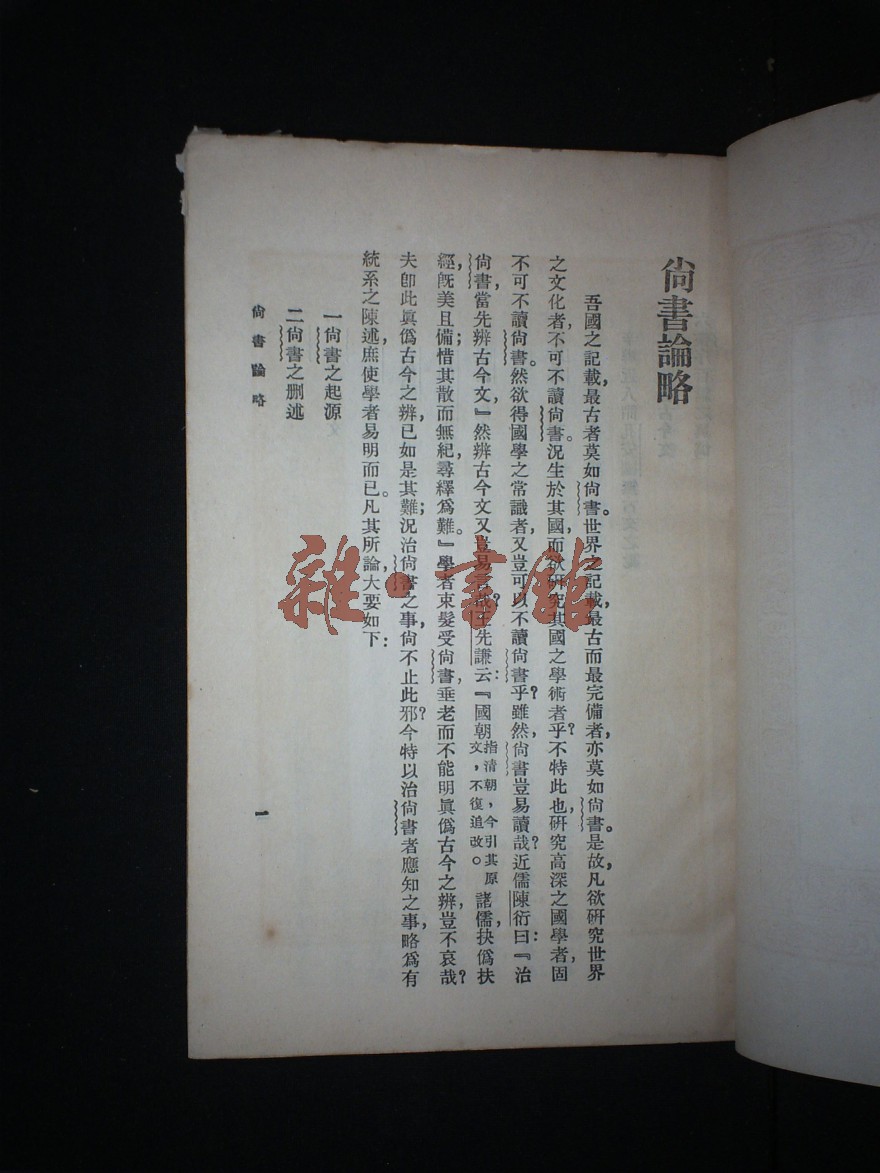 尚書論略
吾國之記載，最古者莫如尚書。世界之記載，最古而最完備者，亦莫如尚書。是故，凡欲研究世界
之文化者，不可不讀尚書。況生於其國，而欲研究其國之學術者乎？不特此也，研究高深之國學者，固
不可不讀尚書。然欲得國學之常識者，又豈可以不讀尚書乎？雖然，尚書豈易讀哉？近儒陳衍曰：『治
尚書，當先辨古今文』然辨古今文又豈易言哉？王先謙云：『國朝指清朝，今引其原文，不復追改。諸儒，抉僞扶
經，既美且備；惜其散而無紀，尋繹爲難。』學者束髮受尚書，垂老而不能明眞僞古今之辨，豈不哀哉？
夫卽此眞僞古今之辨，已如是其難；況治尚書之事，尙不止此邪？今特以治尚書者應知之事，略爲有
統系之陳述，庶使學者易明而已。凡其所論，大要如下：
一尚書之起源
二尚書之删述
尚書論略
一
雜·書館